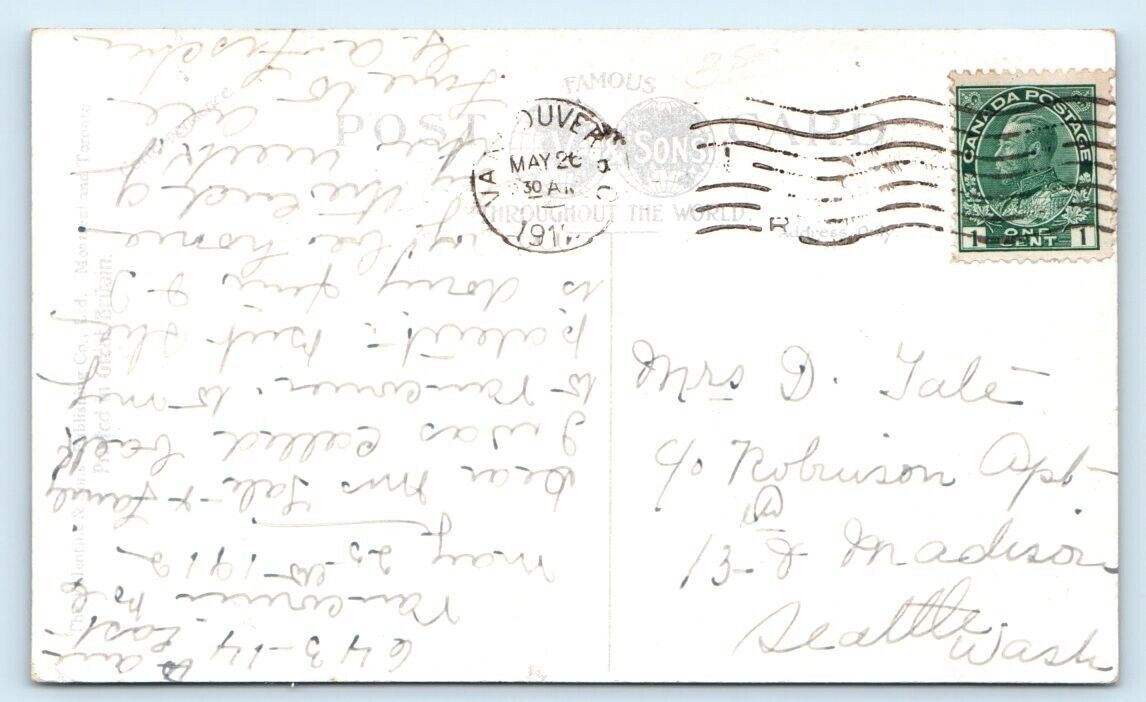 POST CARD
FAMOUS
SONS
THROUGHOUT THE WORLD.
Address Only
VANCOUVER B.C
MAY 26
30 AM
191
CANADA POSTAGE
1 ONE CENT 1
Mrs D. Tale
c/o Robinson Apt
13 & Madison
Seattle
Wash
643-14 ave East
Vancouver B.C
May 25 1912
Dear Mrs Tale & family
I was called back
to Vancouver, to my
patient - but she
is doing fine & I
may be home
by the end of
this week
Love to all
The Valentine & Sons Publishing Co., Ltd. Montreal and Toronto
Printed in Great Britain.